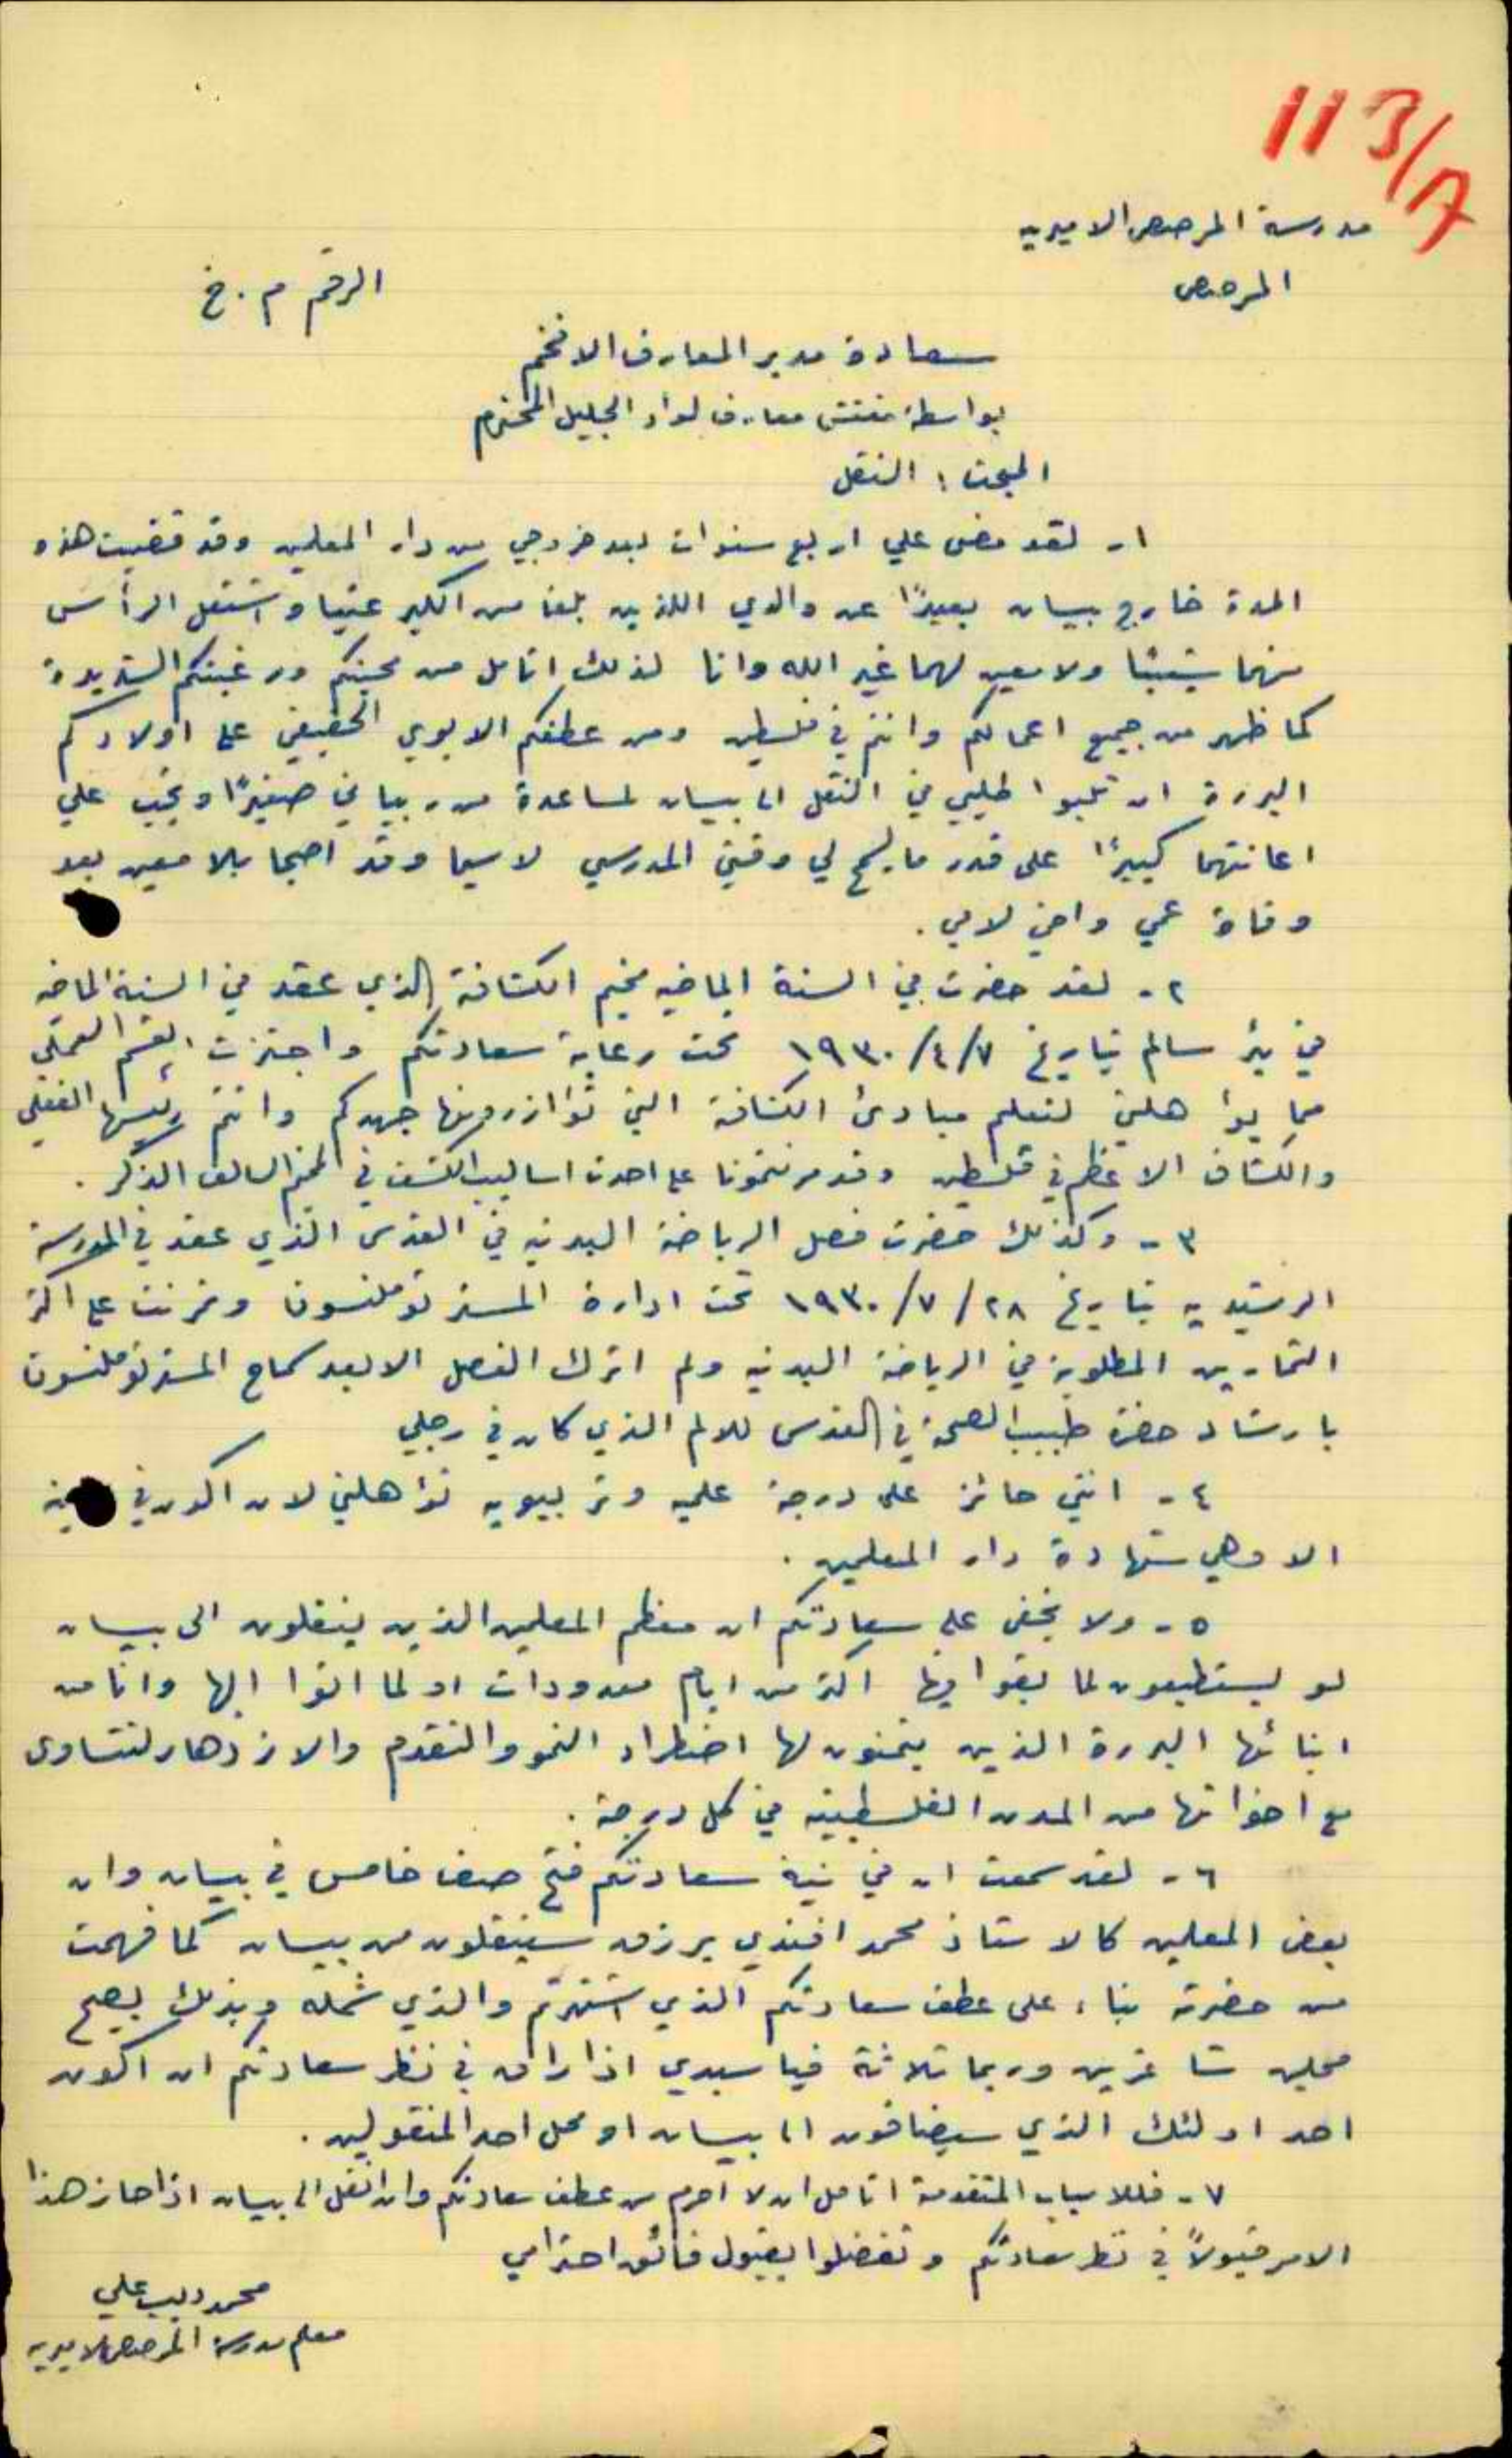 113/A
مدرسة المرصص الاميريه
المرصص
الرقم م . خ
سعادة مدير المعارف الافخم
بواسطة مفتش معارف لواء الجليل المحترم
المبحث : النقل
١- لقد مضى علي اربع سنوات بعد خروجي من دار المعلمين وقد قضيت هذه
المدة خارج بيسان بعيدًا عن والدي اللذين بلغا من الكبر عتيا واشتعل الرأس
منهما شيبًا ولا معين لهما غير الله وانا لذلك اتأمل من محبتكم ورغبتكم الشديدة
كما ظهر من جميع اعمالكم وانتم في فلسطين ومن عطفكم الابوي الحقيقي على اولادكم
البررة ان تلبوا طلبي في النقل الى بيسان لمساعدة من ربياني صغيرًا ويجب علي
اعانتهما كبيرًا على قدر ما يسمح لي وقتي المدرسي لا سيما وقد اصبحا بلا معين بعد
وفاة عمي واخي لابي .
٢- لقد حضرت في السنة الماضيه مخيم الكشافة الذي عقد في السنة الماضيه
في بئر سالم بتاريخ ١٩٣٠/٤/٧ تحت رعاية سعادتكم واجتزت القسم العملي
مما يؤاهلني لتعلم مبادئ الكشافة التي تؤازرونها جهدكم وانتم رئيسها الفعلي
والكشاف الاعظم في فلسطين وقد مرنتمونا على احدث اساليب الكشف في المخيم السالف الذكر .
٣- وكذلك حضرت فصل الرياضة البدنيه في القدس الذي عقد في المدرسة
الرشيديه بتاريخ ٢٨ /٧ /١٩٣٠ تحت ادارة المستر توملنسون وتمرنت على اكثر
التمارين المطلوبة في الرياضة البدنيه ولم اترك الفصل الا بعد سماح المستر توملنسون
بارشاد حضرة طبيب الصحة في القدس للالم الذي كان في رجلي
٤- انني حائز على درجة علميه وتربيويه تؤاهلني لان اكون في
الا وهي شهادة دار المعلمين .
٥- ولا يخفى على سعادتكم ان معظم المعلمين الذين ينقلون الى بيسان
لو يستطيعون لما بقوا فيها اكثر من ايام معدودات او لما اتوا اليها وانا من
ابنائها البررة الذين يتمنون لها اضطراد النمو والتقدم والازدهار لتتساوى
مع اخواتها من المدن الفلسطينيه في كل درجة .
٦- لقد سمعت ان في نية سعادتكم فتح صف خامس في بيسان وان
بعض المعلمين كالاستاذ محمد افندي يرزق سينقلون من بيسان كما فهمت
من حضرته بناء على عطف سعادتكم الذي اشتهرتم والذي شمله وبذلك يصبح
محلين شاغرين وربما ثلاثة فيا سيدي اذا راق في نظر سعادتكم ان اكون
احد اولئك الذي سيضافون الى بيسان او محل احد المنقولين .
٧- فللاسباب المتقدمة اتأمل ان لا احرم من عطف سعادتكم وان انقل الى بيسان اذا حاز هذا
الامر قبولاً في نظر سعادتكم وتفضلوا بقبول فائق احترامي
محمد ديب علي
معلم مدرسة المرصص الاميريه